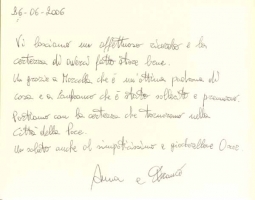 26-06-2006
Vi lasciamo un affettuoso ricordo e la
certezza di averci fatto stare bene.
Un grazie a Marcella che è un'ottima padrona di
casa e a Gianfranco che è stato sollecito e premuroso.
Partiamo con la certezza che torneremo nella
Città della Pace.
Un saluto anche al simpaticissimo e giocherellone
Anna e